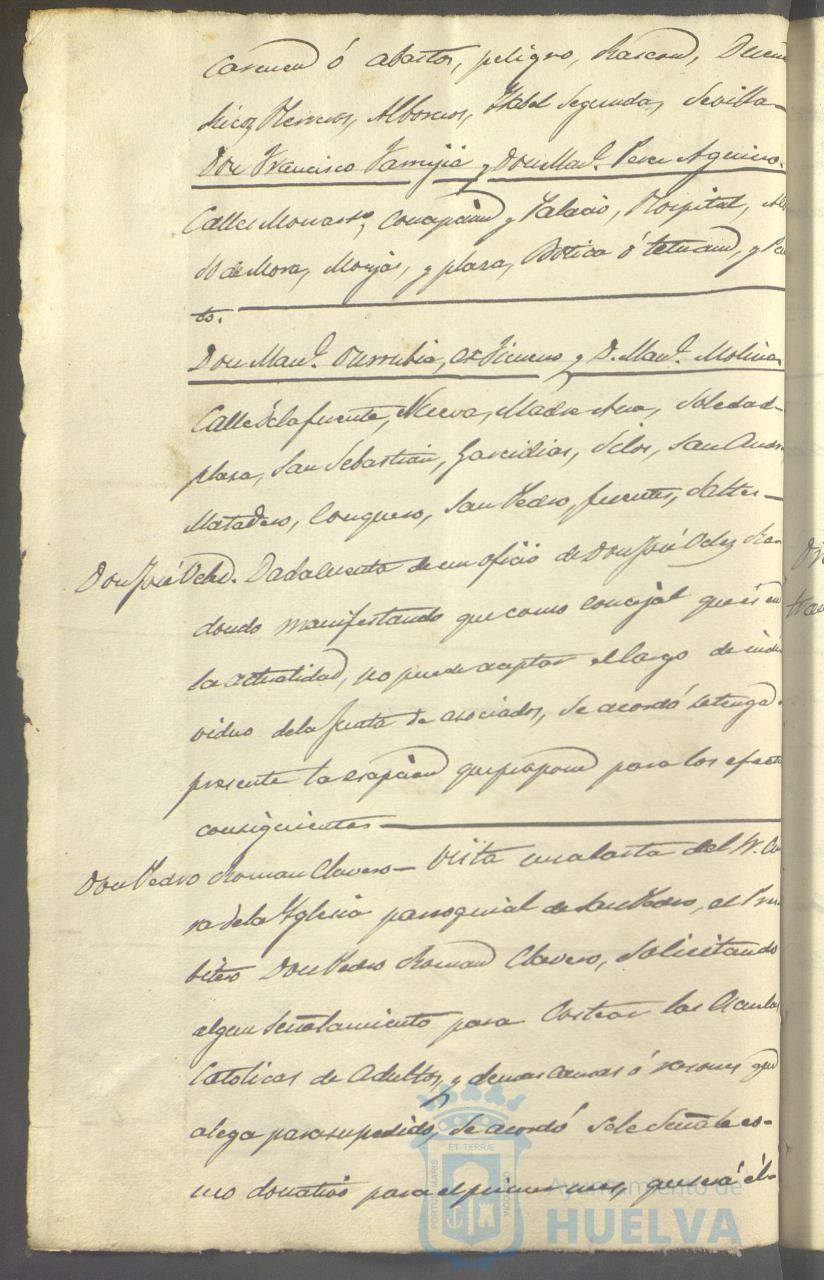 Carmen ó abastos, peligro, Rascon,
Rico, Herreros, Alborno, Isabel Segunda, Sevilla—
Don Francisco Jamijia y Don Man.l Perez Aguirre.
Calles Monasto, Concepcion y Palacio, Hospital,
de Mora, Monjas, y plaza, Botica ó tetuan, y Pu
to.
Don Man.l Yturrubia, y D. Man.l Molina
Calle de la fuente, Nueva, Madre Ana, Soledad—
plaza, San Sebastian, Garcidias, Silos, San
Matadero, Conquero, San Pedro, fuentes, Saltes—
Don José Velez. Dada cuenta de un oficio de Don José Velez Re
dondo manifestando que como concejal que és en
la actualidad, no puede aceptar el cargo de indi
viduo de la Junta de asociados, se acordó se tenga
presente la escepcion que propone para los efectos
consiguientes—
Don Pedro Roman Clavero— Vista una carta del Sr. Cu
ra de la Yglesia parroquial de San Pedro, el Pres
bitero Don Pedro Roman Clavero, solicitando
algun señalamiento para costear las Escuelas
Catolicas de Adultos, y demas causas ó razones que
alega para su pedido, se acordó se le señale co-
mo donativo para el primer mes, que será él—
PORTUS MARIS
ET TERRÆ
CUSTODIA
Ayuntamiento de
HUELVA